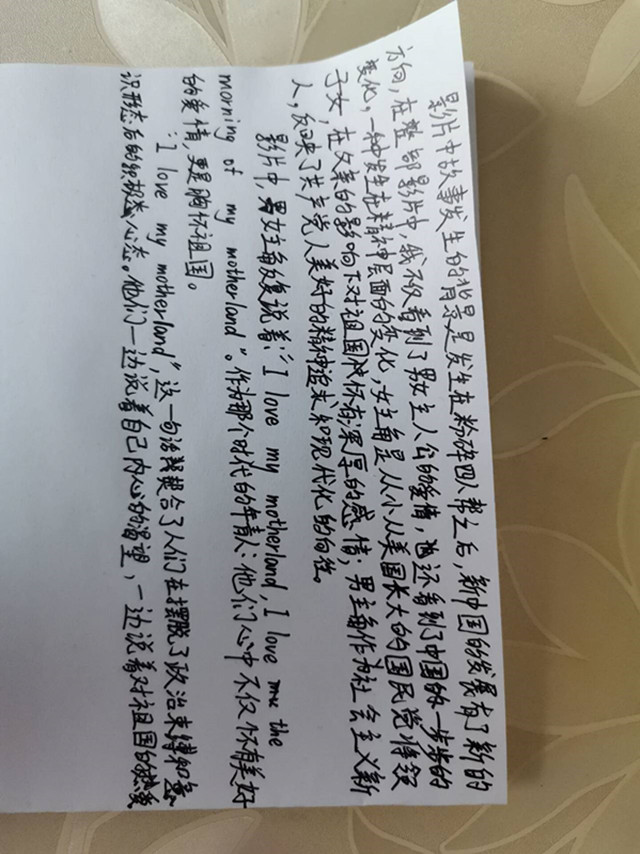 影片中故事发生的背景是发生在粉碎四人帮之后，新中国的发展有了新的
方向，在整部影片中，我不仅看到了男女主人公的爱情，也还看到了中国的一步步的
变化，一种发生在精神层面的变化，女主角是从小从美国长大的国民党将领
子女，在父亲的影响下对祖国怀有深厚的感情；男主角作为社会主义新
人，反映了共产党人美好的精神追求和现代化的向往。
影片中，男女主角反复说着："I love my motherland, I love the
morning of my motherland"。作为那个时代的年青人：他们心中不仅怀有美好
的爱情，更是胸怀祖国。
"I love my motherland"，这一句话契合了人们在摆脱了政治束缚和意
识形态后的积极心态。他们一边说着自己内心的渴望，一边说着对祖国的热爱